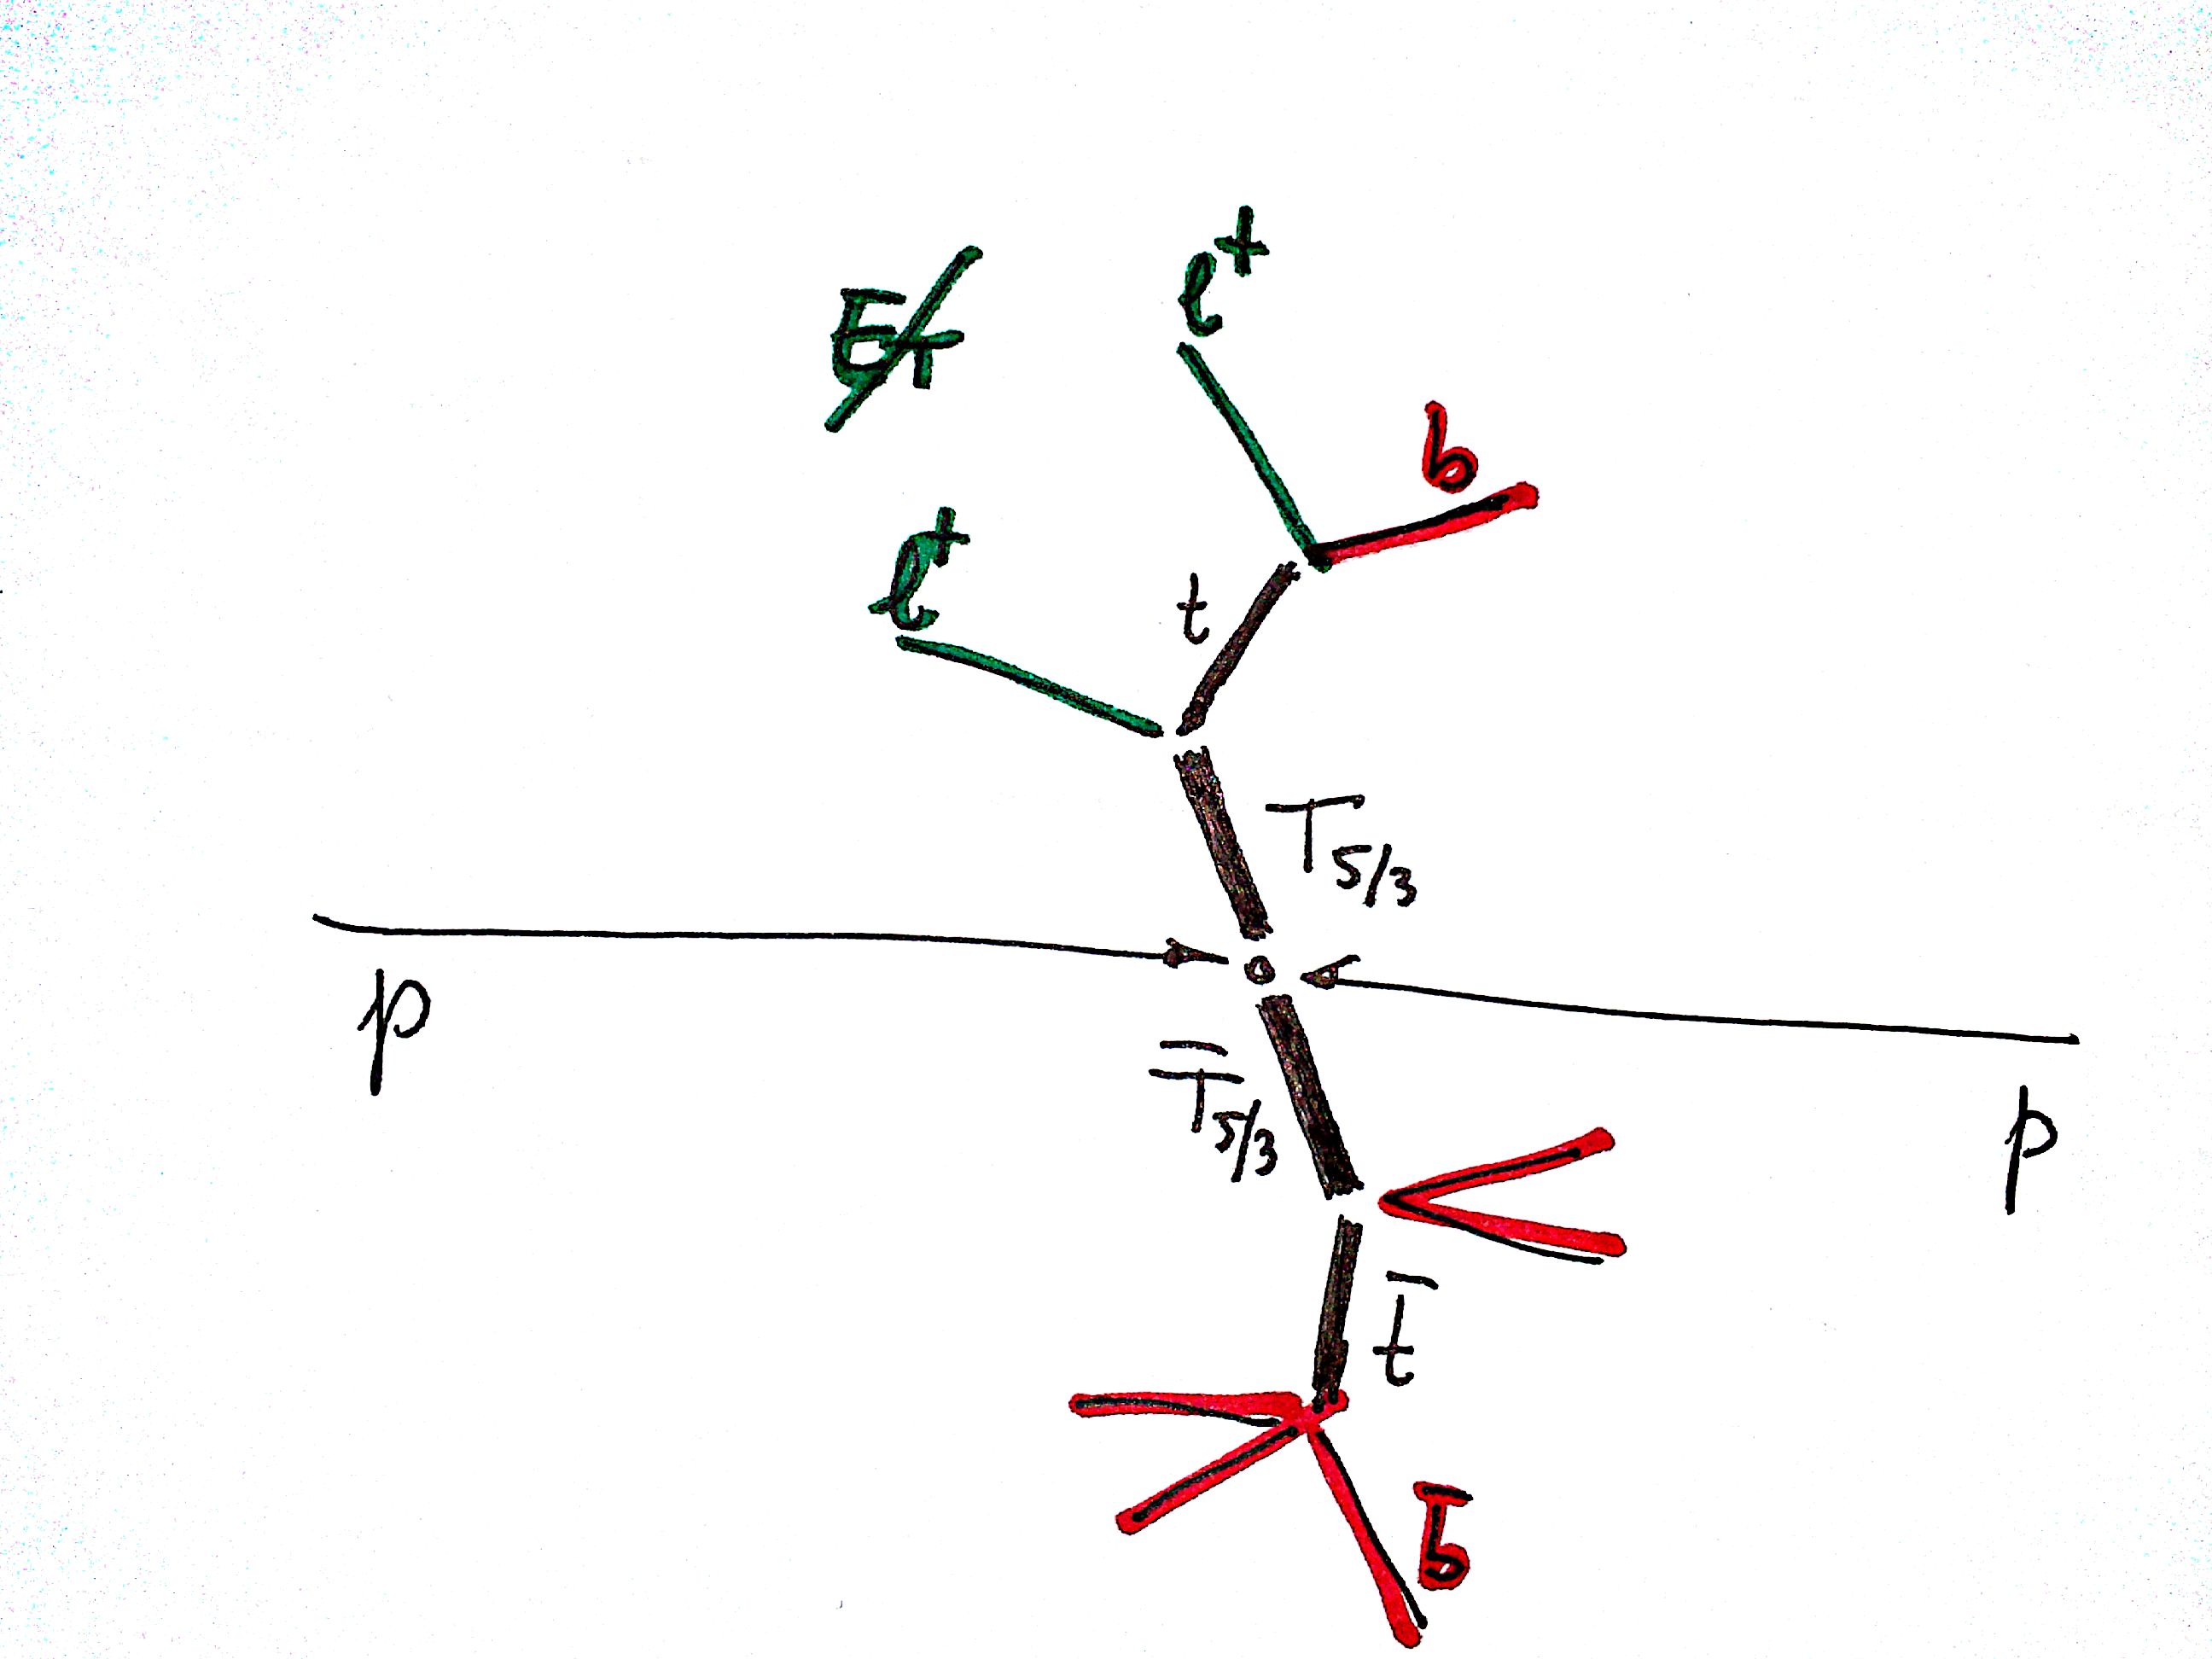 E̸T
l+
b
l+
t
T5/3
p
T̅5/3
p
t̅
b̅